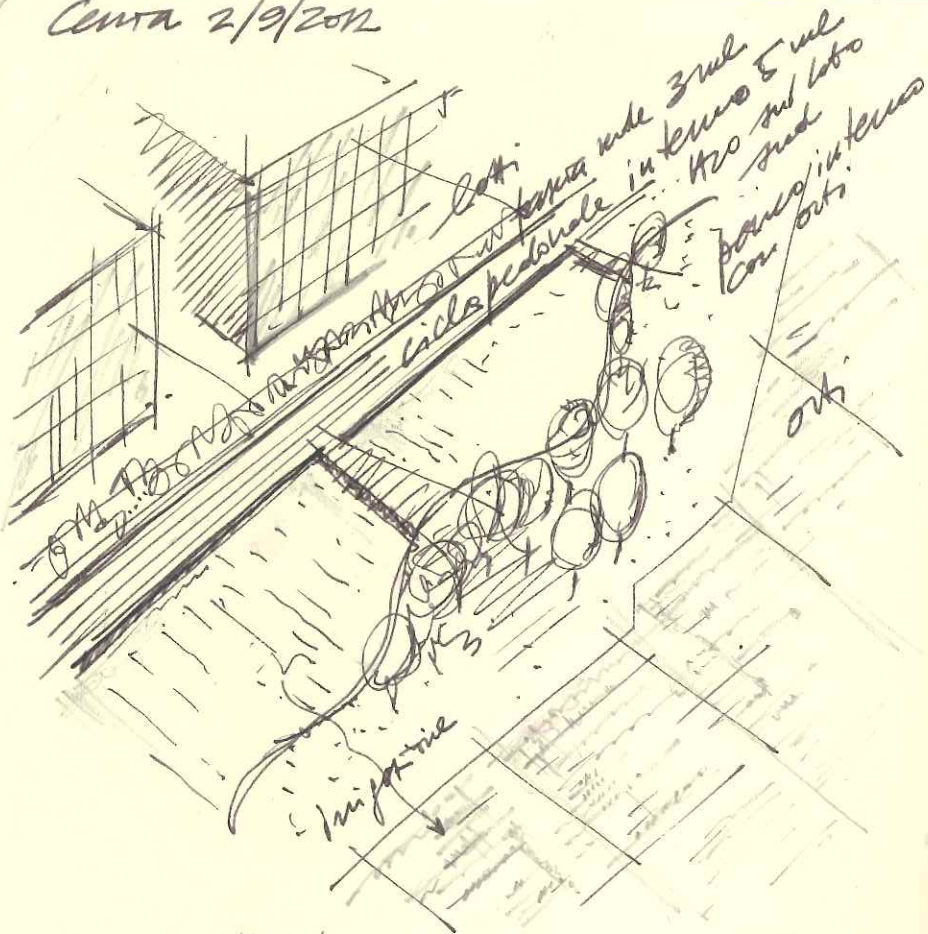 Cenra 2/9/2012
lotti
verde 3 ml
ciclopedonale interno 5 ml
sul lato
sud
parco/interno
con orti
orti
irrigazione